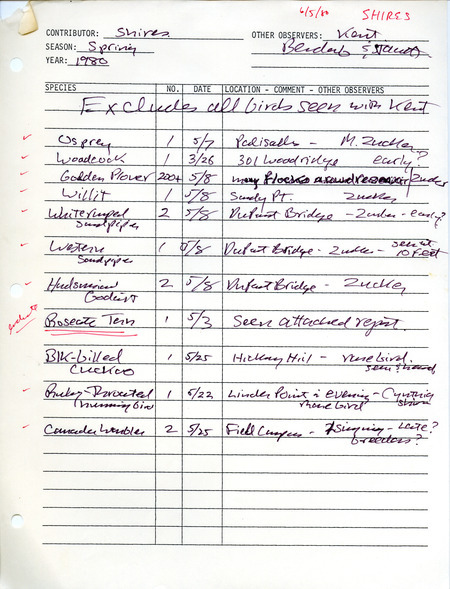 6/5/80 SHIRES
CONTRIBUTOR: Shires OTHER OBSERVERS: Kent
SEASON: Spring
YEAR: 1980
SPECIES NO. DATE LOCATION - COMMENT - OTHER OBSERVERS
Excludes all birds seen with Kent
Osprey 1 5/7 Palisades - M. Zucker
Woodcock 1 3/26 301 Woodridge early?
Golden Plover 200+ 5/8 many flocks around reservoir Zucker
Willit 1 5/8 Sandy Pt. Zucker
White rumped 2 5/8 DuPont Bridge - Zucker - early?
Sandpiper
Western 1 5/8 DuPont Bridge - Zucker - seen at
Sandpiper 10 feet
Hudsonian 2 5/8 DuPont Bridge - Zucker
Godwit
Roseate Tern 1 5/3 Seen attached report.
Blk-billed 1 5/25 Hickory Hill - rare bird.
Cuckoo seen & heard
Ruby-Throated 1 5/22 Linder Point in evening - Cynthia
Humming bird rare bird
Canada Warbler 2 5/25 Field Campus - singing - late?
breeders?